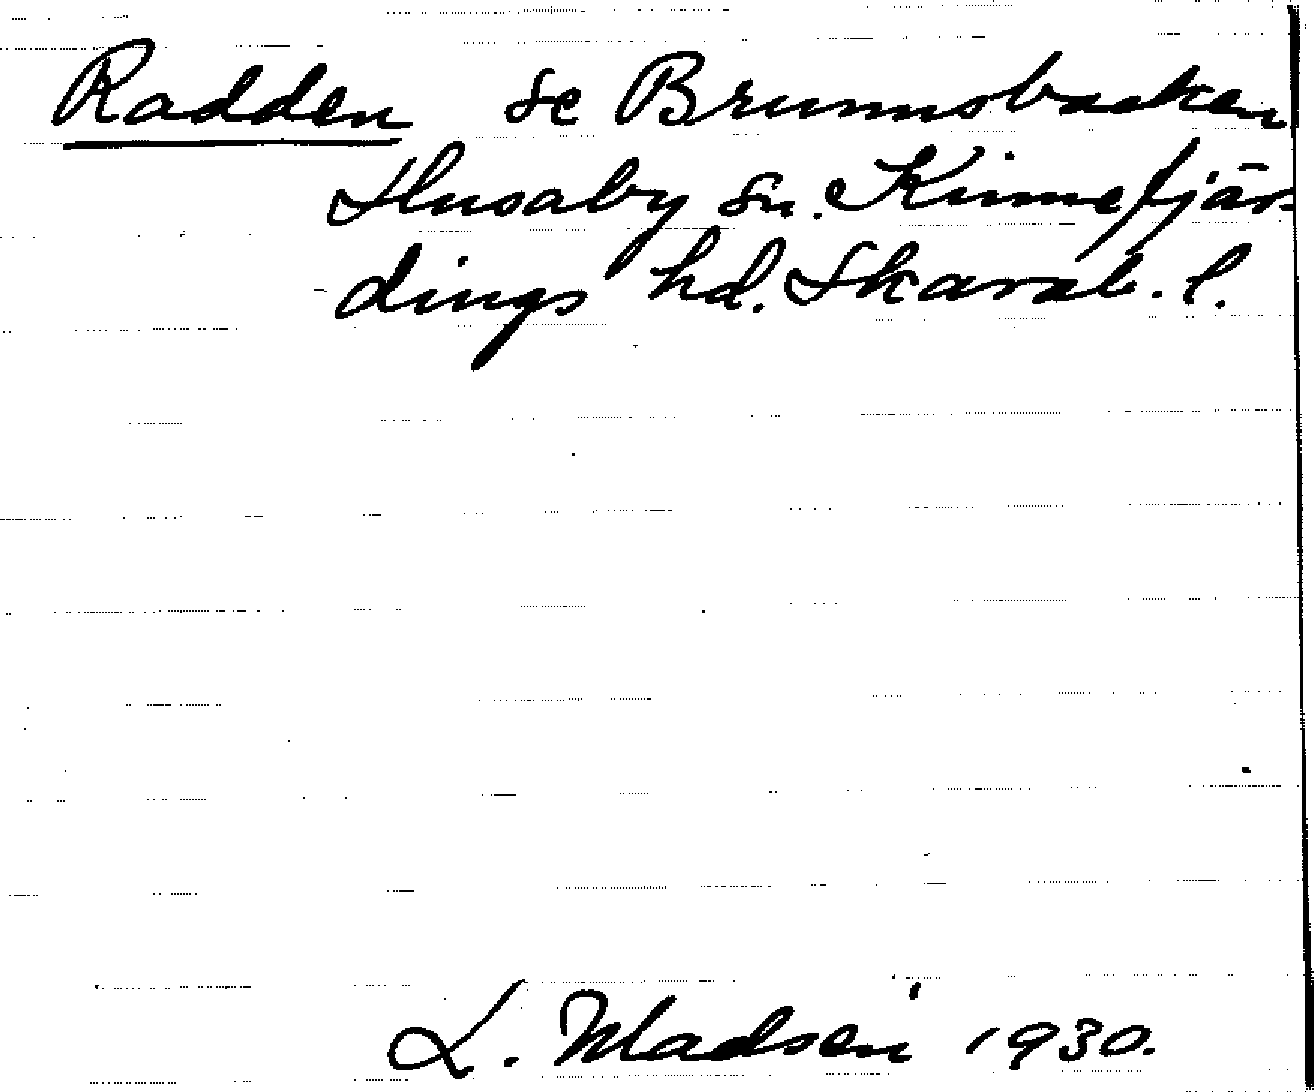 Radden se Brunnsbacken
Husaby sn. Kinnefjär-
dings hd. Skarab. l.
L. Madsén 1930.